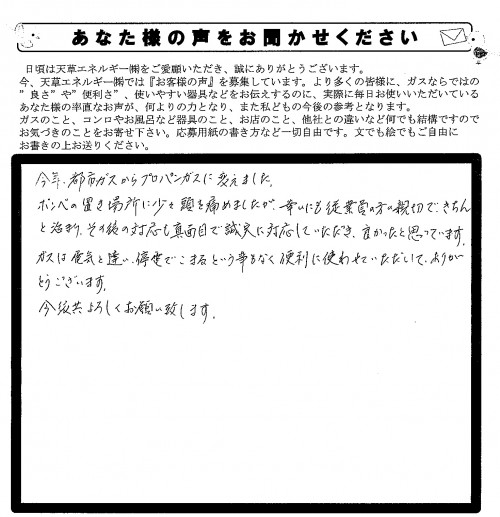 あなた様の声をお聞かせください
日頃は天草エネルギー㈱をご愛顧いただき、誠にありがとうございます。
今、天草エネルギー㈱では『お客様の声』を募集しています。より多くの皆様に、ガスならではの
”良さ”や”便利さ”、使いやすい器具などをお伝えするのに、実際に毎日お使いいただいている
あなた様の率直なお声が、何よりの力となり、また私どもの今後の参考となります。
ガスのこと、コンロやお風呂など器具のこと、お店のこと、他社との違いなど何でも結構ですので
お気づきのことをお寄せ下さい。応募用紙の書き方など一切自由です。文でも絵でもご自由に
お書きの上お送りください。
今年、都市ガスからプロパンガスに変えました。
ボンベの置き場所に少々頭を痛めましたが、幸いにも従業員の方の親切できちん
と治まり、その後の対応も真面目で誠実に対応していただき、良かったと思っています。
ガスは電気と違い、停電でこまるという事もなく便利に使わせていただいて、ありが
とうございます。
今後共よろしくお願い致します。